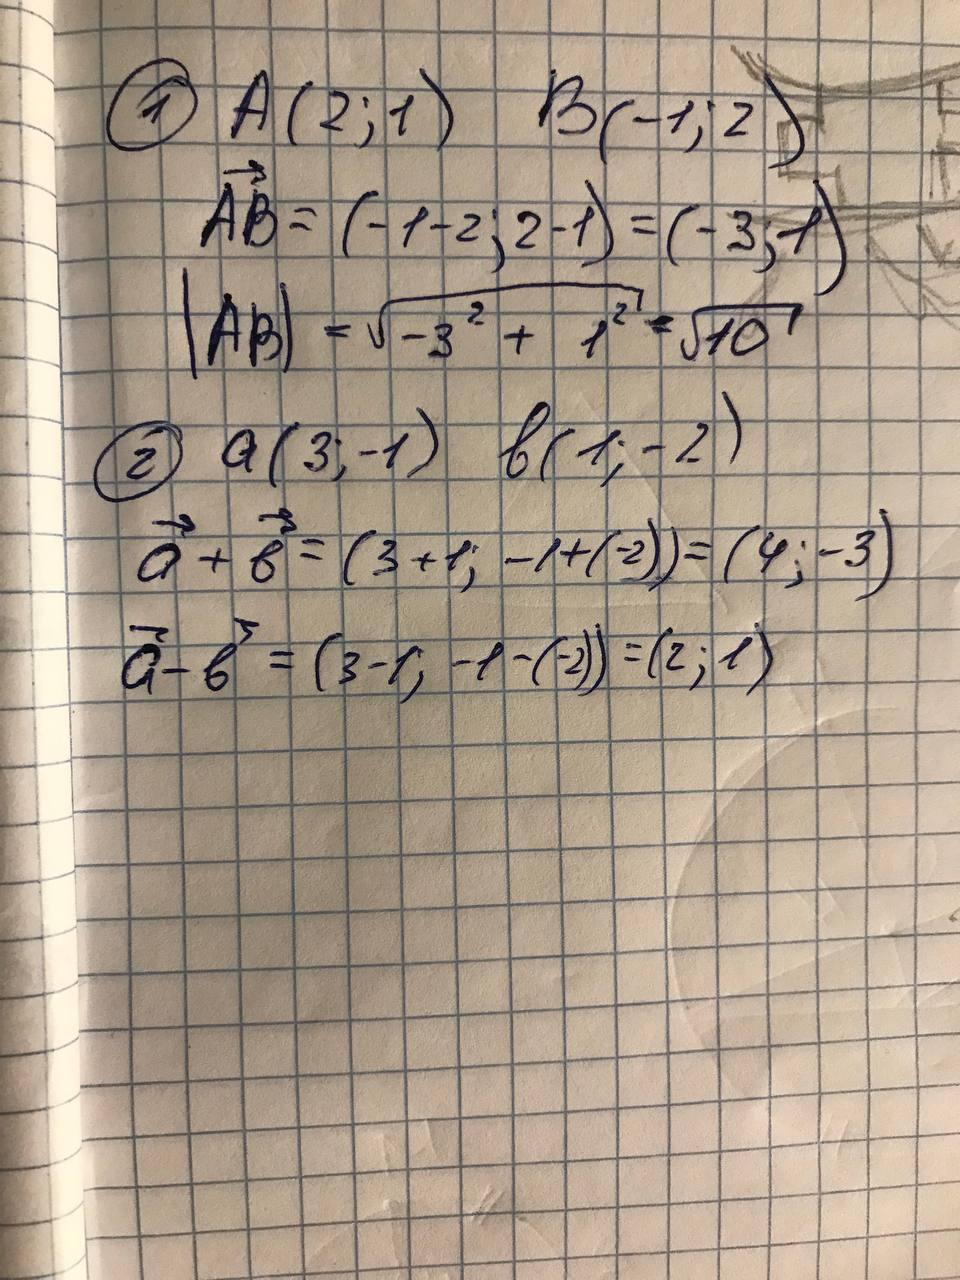 ① A(2;1) B(-1;2)
AB⃗ = (-1-2; 2-1) = (-3; 1)
|AB| = √(-3² + 1²) = √10
② a(3;-1) b(1;-2)
a⃗ + b⃗ = (3+1; -1+(-2)) = (4; -3)
a⃗ - b⃗ = (3-1; -1-(-2)) = (2; 1)